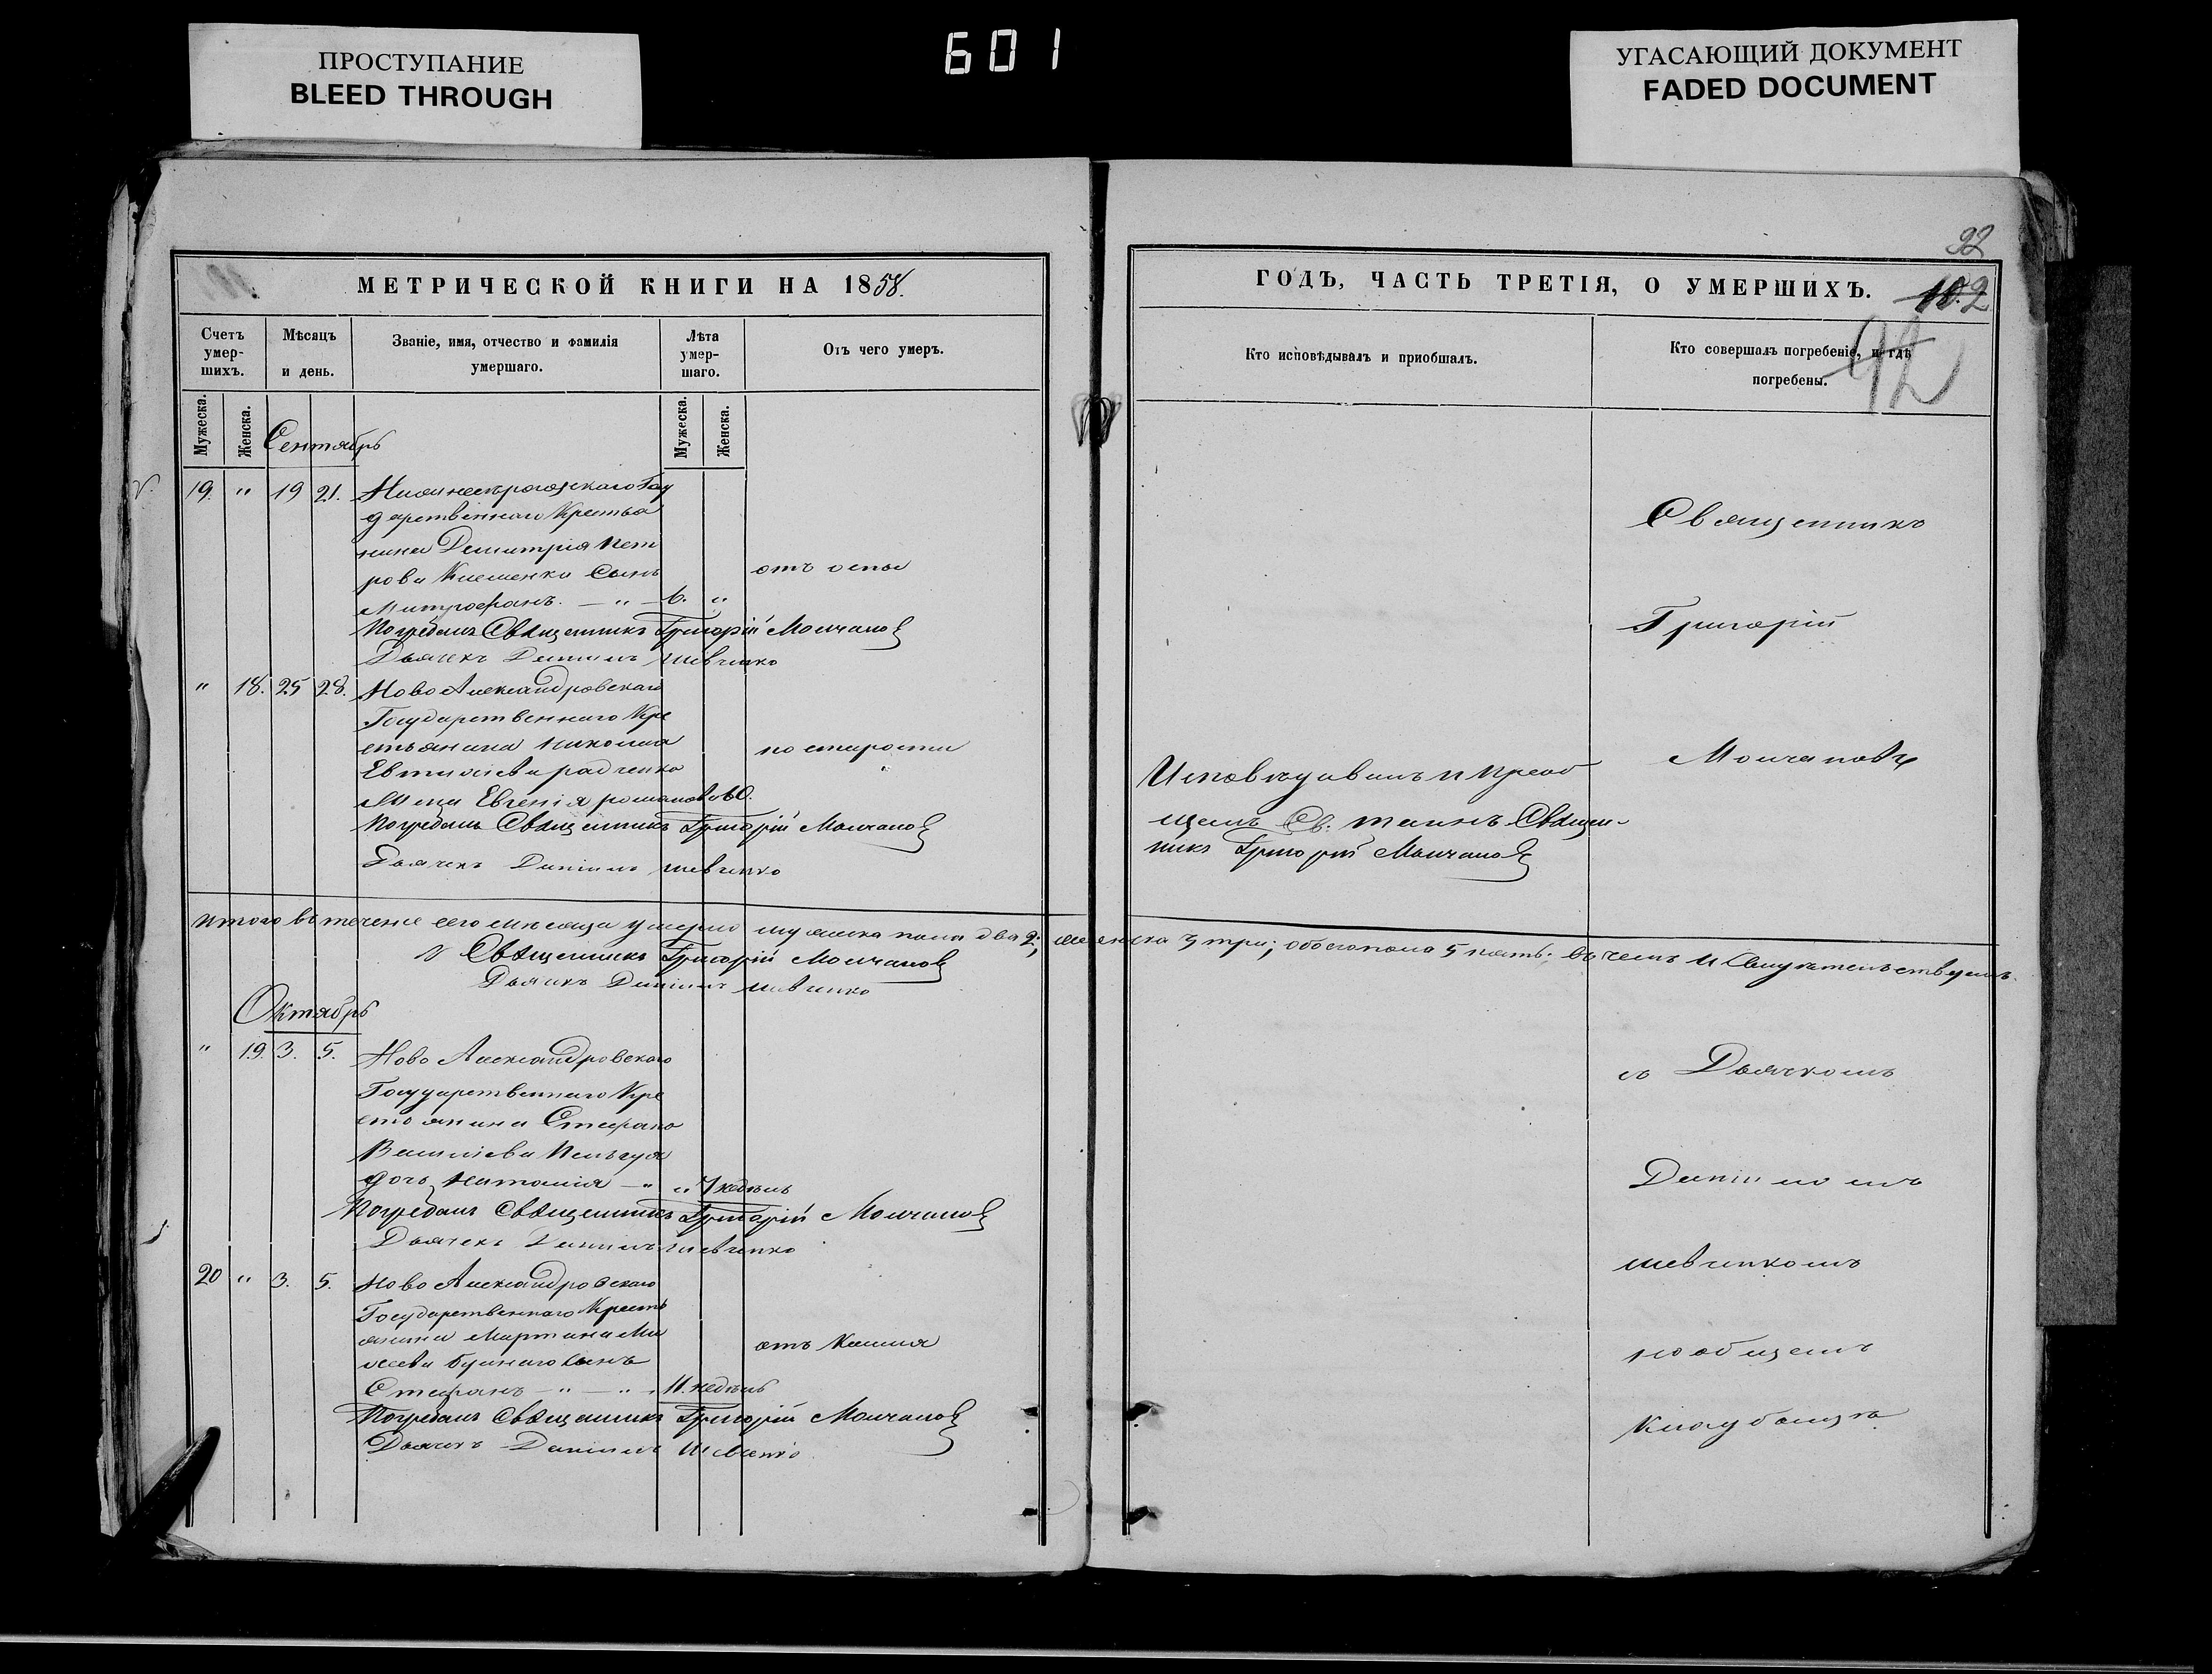 ПРОСТУПАНИЕ
BLEED THROUGH
601
УГАСАЮЩИЙ ДОКУМЕНТ
FADED DOCUMENT
МЕТРИЧЕСКОЙ КНИГИ НА 1858.
Счетъ умер-шихъ.
Мѣсяцъ и день.
Званіе, имя, отчество и фамилія умершаго.
Лѣта умер-шаго.
Отъ чего умеръ.
Мужеска.
Женска.
Мужеска.
Женска.
Сентябрь
19. " 19 21.
дарственнаго Крестья
нина Димитрія Пет
рова Клименки Сынъ
отъ оспы
Митрофанъ. — " — 6. "
Погребалъ Священникъ Григорій Молчановъ
Дьячекъ Даніилъ Шевченко
" 18. 25 28. Ново Александровскаго
Государственнаго Кре
стьянина Николая
по старости
Евтихіева радченка
Евгенія романова 60.
Погребалъ Священникъ Григорій Молчановъ
Дьячекъ Даніилъ Шевченко
итого въ теченіе сего мѣсяца умерло мужеска пола два 2; женска 3 три; обоего пола 5 пять; въ чемъ и Свидѣтельствуемъ
Священникъ Григорій Молчановъ
Дьячекъ Даніилъ Шевченко
Октябрь
" 19. 3. 5. Ново Александровскаго
Государственнаго Кре
стьянина Стефана
Василіева
дочь Наталія — " " 7 недѣль
Погребалъ Священникъ Григорій Молчановъ
Дьячекъ Даніилъ Шевченко
20 " 3. 5. Ново Александровскаго
Государственнаго Кресть
янина Мартина
отъ Кашля
сынъ
Стефанъ — " — " 11. недѣль
Погребалъ Священникъ Григорій Молчановъ
Дьячекъ Даніилъ Шевченко
92
ГОДЪ, ЧАСТЬ ТРЕТІЯ, О УМЕРШИХЪ.
102
92
Кто исповѣдывалъ и приобщалъ.
Кто совершалъ погребеніе, и гдѣ погребены.
Исповѣдывалъ и Преоб
щалъ Св. таинъ Священ-
никъ Григорій Молчановъ
Священникъ
Григорій
Молчановъ
съ Дьячкомъ
Даніиломъ
Шевченкомъ
на общемъ
Кладбищѣ